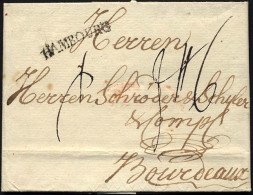 HAMBOURG
Herren
Herren Schröder & Schyler
& Comp
Bourdeaux